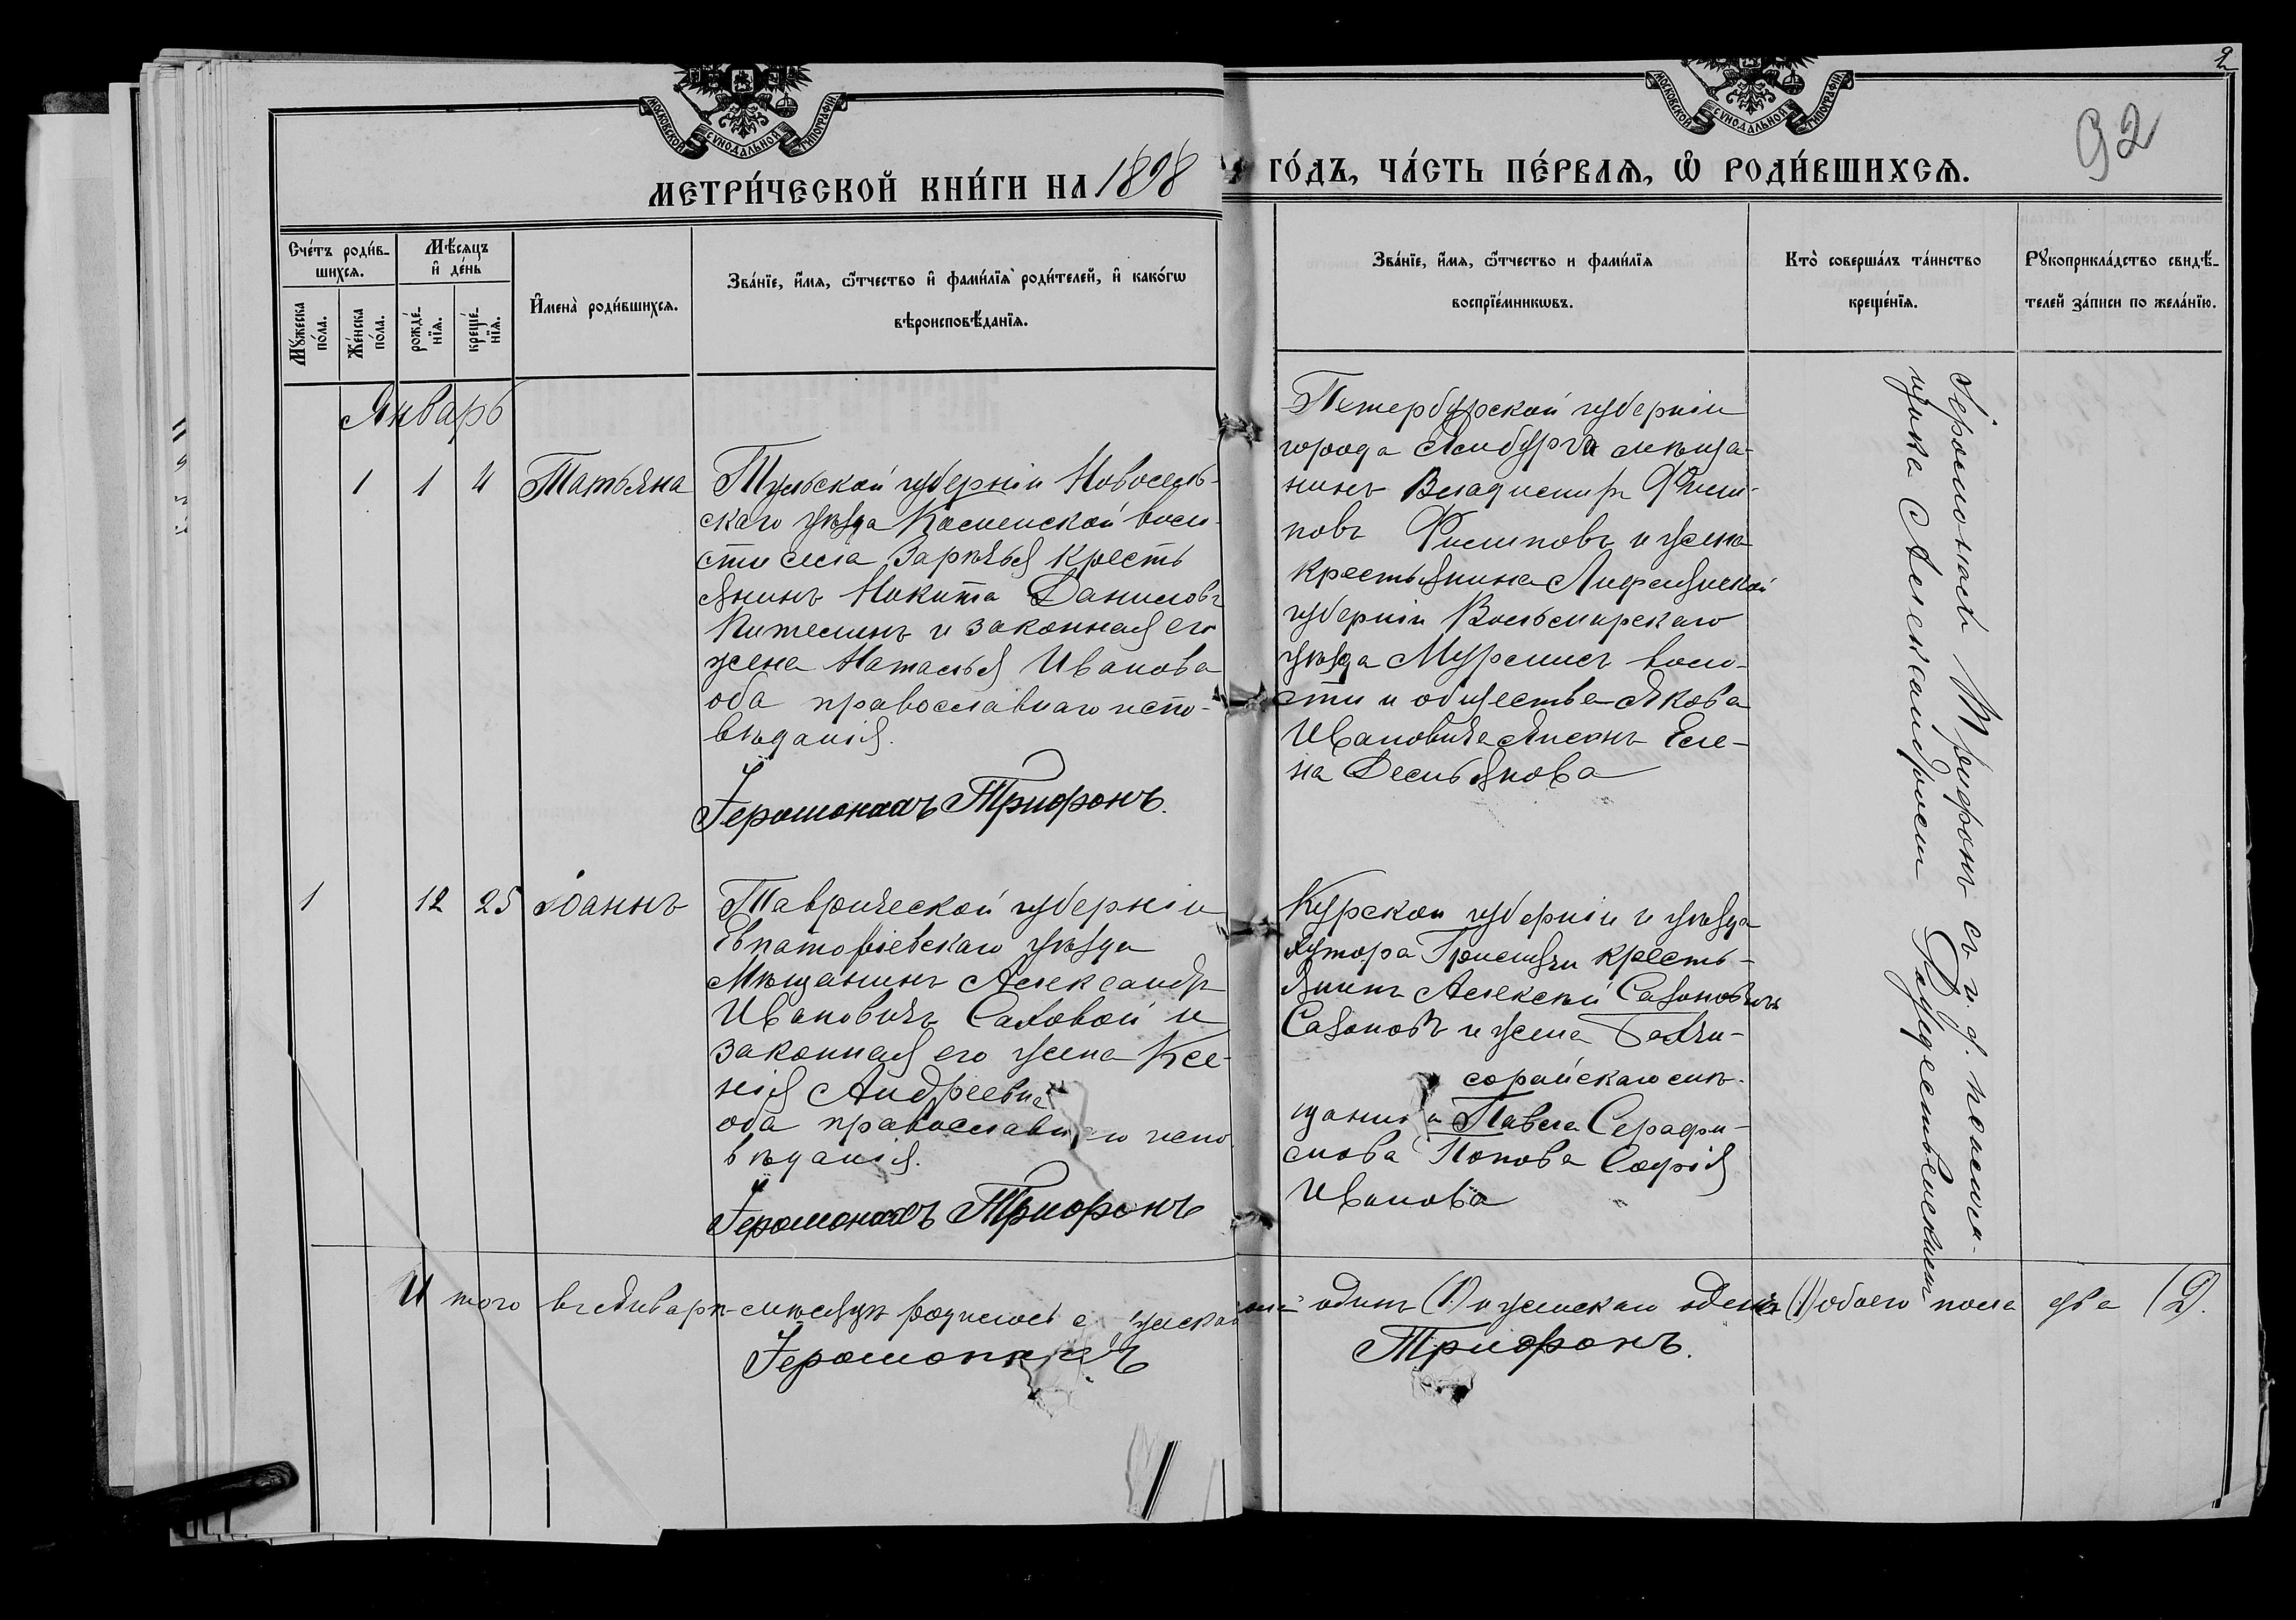 2
92
МОСКОВСКОЙ СѴНОДАЛЬНОЙ ТИПОГРАФІИ
МОСКОВСКОЙ СѴНОДАЛЬНОЙ ТИПОГРАФІИ
МЕТРИ́ЧЕСКОЙ КНИ́ГИ НА 1898 ГО́ДЪ, ЧА́СТЬ ПЕ́РВАѦ, Ѽ РОДИ́ВШИХСѦ.
Сче́тъ роди́в-
шихсѧ.
Мꙋ́жеска
по́ла.
Же́нска
по́ла.
Мѣ́сѧцъ
и҆ де́нь
рожде́-
нїѧ.
креще́-
нїѧ.
И҆мена̀ роди́вшихсѧ.
Зва́нїе, и҆́мѧ, ѻ҆́тчество и҆ фами́лїѧ роди́телей, и҆ како́гѡ
вѣроисповѣ́данїѧ.
Зва́нїе, и҆́мѧ, ѻ҆́тчество и фами́лїѧ
воспрїе́мникѡвъ.
Кто̀ соверша́лъ та́инство
креще́нїѧ.
Рꙋкоприкла́дство свидѣ́-
телей за́писи по жела́нїю.
Январь
1 1 4 Татьяна
Тульской губерніи Новосель-
скаго уѣзда Каменской воло-
сти села Зарѣчья кресть
янинъ Никита Даниловъ
и законная его
жена Наталья Иванова
оба православнаго испо-
вѣданія.
Іеромонахъ Трифонъ.
Петербурской губерніи
города Ямбурга мѣща-
нинъ Владимиръ Фили-
повъ Филиповъ и жена
крестьянина Лифляндской
губерніи Вольмарскаго
уѣзда воло-
сти и общества Якова
Ивановича Еле-
на Демьянова
Іеромонахъ Трифонъ съ и. д. псаломщ-
ика Александромъ Рождественскимъ
1 12 25 Іоаннъ
Таврической губерніи
Евпаторіевскаго уѣзда
Мѣщанинъ Александръ
Ивановичъ Саховой и
законная его жена Ксе-
нія Андреевна
оба православнаго испо
вѣданія.
Іеромонахъ Трифонъ
Курской губерніи и уѣзда
хутора кресть-
янинъ Алексѣй Сазоновичъ
Сазоновъ и жена Бахчи-
сорайскаго мѣ-
щанина Павла Серафи-
мова Попова Софія
Иванова
Итого въ Январѣ мѣсяцѣ родилось мужскаго пола одинъ (1) и женскаго одна (1) обоего пола два (2).
Іеромонахъ Трифонъ.